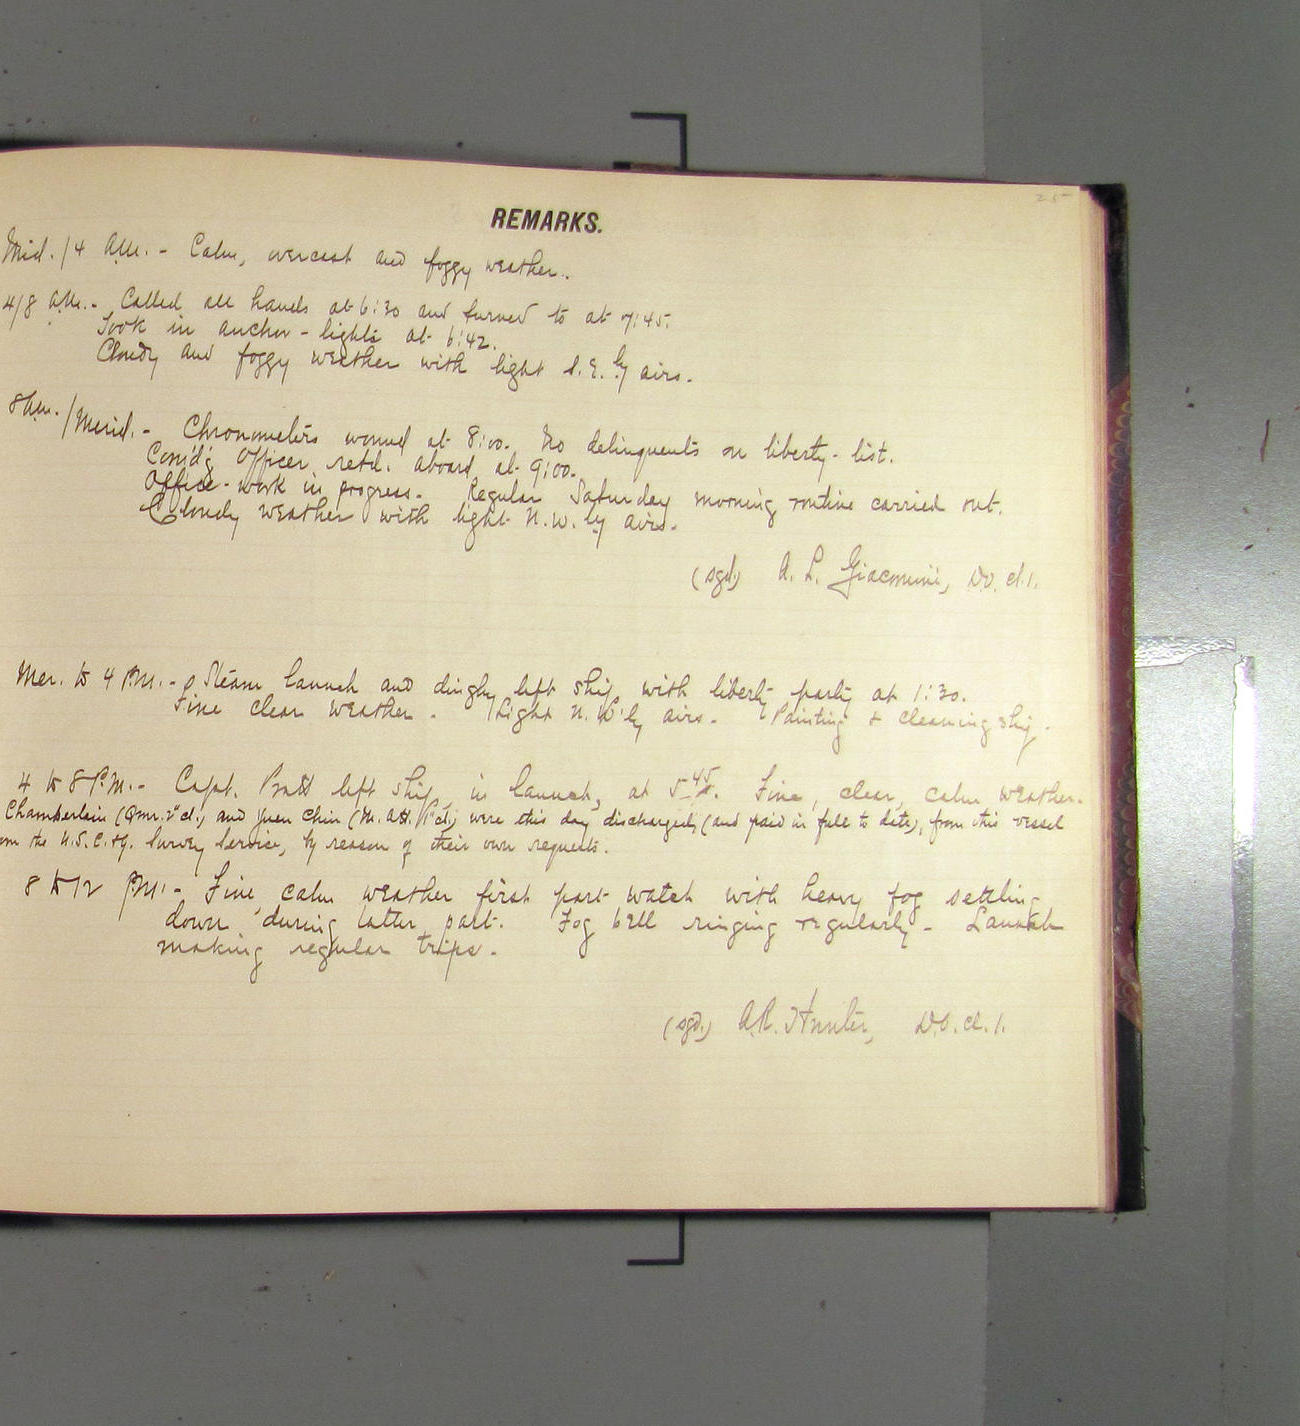 25
REMARKS.
Mid./4 A.M. - Calm, overcast and foggy weather.
4/8 A.M. - Called all hands at 6:30 and turned to at 7:45.
Took in anchor-lights at 6:42.
Cloudy and foggy weather with light S.E.'ly airs.
8 A.M./Merid. - Chronometers wound at 8:00. No delinquents on liberty-list.
Com'd'g Officer retd. aboard at 9:00.
Office-work in progress. Regular Saturday morning routine carried out.
Cloudy weather with light N.W.'ly airs.
(sgd) A. L. Giacomini, D.O. cl. 1.
Mer. to 4 P.M. - Steam launch and dinghy left ship with liberty party at 1:30.
Fine clear weather. Light N.W'ly airs. Painting & cleaning ship.
4 to 8 P.M. - Capt. Pratt left ship in launch, at 5 45. Fine, clear, calm weather.
Chamberlain (Qmr. 2" cl.) and Yuen Chin (M. Att. 1" cl.) were this day discharged, (and paid in full to date), from this vessel
om the U.S.C. & G. Survey Service, by reason of their own requests.
8 to 12 P.M. - Fine calm weather first part watch with heavy fog settling
down during latter part. Fog bell ringing regularly - Launch
making regular trips.
(sgd.) A.R. Hunter, D.O. cl. 1.